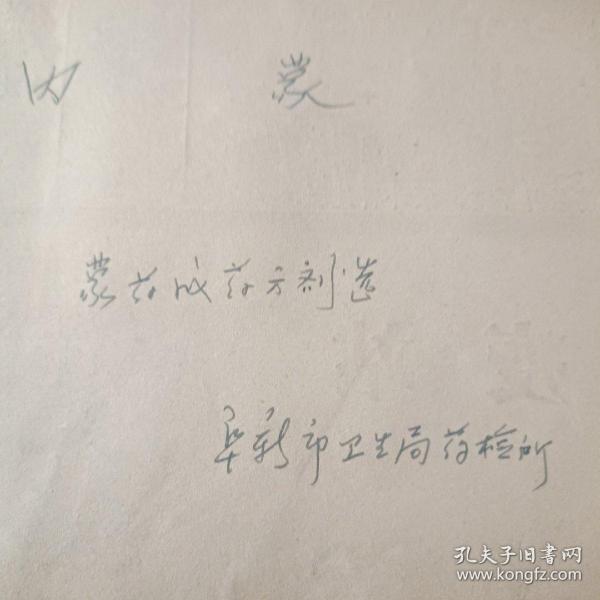 内 蒙
蒙药成药方剂选
阜新市卫生局药检所
孔夫子旧書网
www.kongfz.com